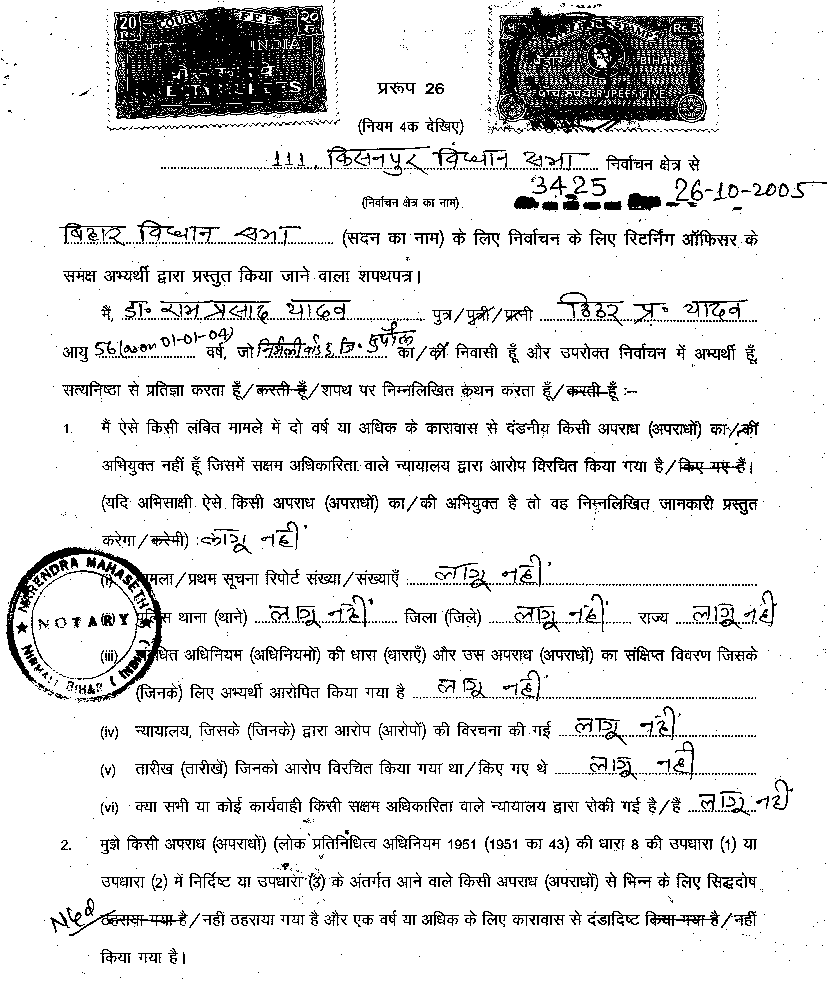 20 COURT FEE 20
RS. INDIA
Rs.5
BIHAR
RUPEES FIVE
प्ररूप 26
(नियम 4क देखिए)
111, किसनपुर विधान सभा निर्वाचन क्षेत्र से
(निर्वाचन क्षेत्र का नाम) 3425 26-10-2005
बिहार विधान सभा (सदन का नाम) के लिए निर्वाचन के लिए रिटर्निंग ऑफिसर के
समक्ष अभ्यर्थी द्वारा प्रस्तुत किया जाने वाला शपथपत्र।
मैं, डा० राम प्रसाद यादव पुत्र/पुत्री/पत्नी प्र० यादव
आयु 56 (as on 01-01-04) वर्ष, जो जि० सुपौल का/की निवासी हूँ और उपरोक्त निर्वाचन में अभ्यर्थी हूँ,
सत्यनिष्ठा से प्रतिज्ञा करता हूँ/करती हूँ/शपथ पर निम्नलिखित कथन करता हूँ/करती हूँ :–
1. मैं ऐसे किसी लंबित मामले में दो वर्ष या अधिक के कारावास से दंडनीय किसी अपराध (अपराधों) का/की
अभियुक्त नहीं हूँ जिसमें सक्षम अधिकारिता वाले न्यायालय द्वारा आरोप विरचित किया गया है/किए गए हैं।
(यदि अभिसाक्षी ऐसे किसी अपराध (अपराधों) का/की अभियुक्त है तो वह निम्नलिखित जानकारी प्रस्तुत
करेगा/करेगी) : लागू नहीं
(i) मामला/प्रथम सूचना रिपोर्ट संख्या/संख्याएँ लागू नहीं
(ii) पुलिस थाना (थाने) लागू नहीं जिला (जिले) लागू नहीं राज्य लागू नहीं
(iii) संबंधित अधिनियम (अधिनियमों) की धारा (धाराएँ) और उस अपराध (अपराधों) का संक्षिप्त विवरण जिसके
(जिनके) लिए अभ्यर्थी आरोपित किया गया है लागू नहीं
NARENDRA MAHASETH
NOTARY
NIRMALI BIHAR (INDIA)
(iv) न्यायालय, जिसके (जिनके) द्वारा आरोप (आरोपों) की विरचना की गई लागू नहीं
(v) तारीख (तारीखें) जिनको आरोप विरचित किया गया था/किए गए थे लागू नहीं
(vi) क्या सभी या कोई कार्यवाही किसी सक्षम अधिकारिता वाले न्यायालय द्वारा रोकी गई है/हैं लागू नहीं
2. मुझे किसी अपराध (अपराधों) (लोक प्रतिनिधित्व अधिनियम 1951 (1951 का 43) की धारा 8 की उपधारा (1) या
उपधारा (2) में निर्दिष्ट या उपधारा (3) के अंतर्गत आने वाले किसी अपराध (अपराधों) से भिन्न के लिए सिद्धदोष
ठहराया गया है/नहीं ठहराया गया है और एक वर्ष या अधिक के लिए कारावास से दंडादिष्ट किया गया है/नहीं
किया गया है।